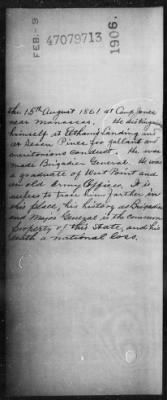 FEB - 9
47079713
1906.
the 15th August 1861 at Camp Jones
near Manassas. He distinguished
himself at Elthams Landing and
at Seven Pines for gallant and
meritorious conduct. He was
made Brigadier General. He was
a graduate of West Point and
an old Army Officer. It is
useless to trace him further in
this place, his history as Brigadier
and Major General is the common
property of this State, and his
death a national loss.